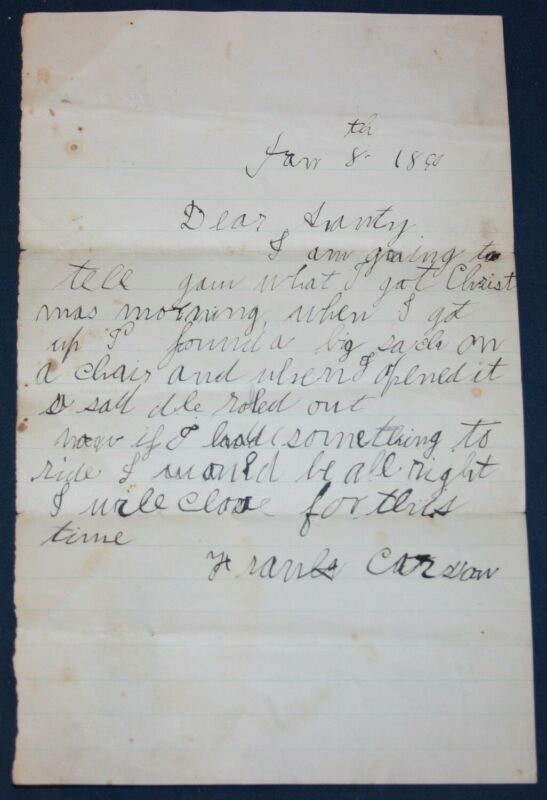 Jan 8th 1890
Dear Santy
I am going to
tell you what I got Christ
mas morning when I got
up I found a big sack on
a chair and when I opened it
a sad dle roled out
now if I had something to
ride I would be all right
I will close for this
time
Frank Carson